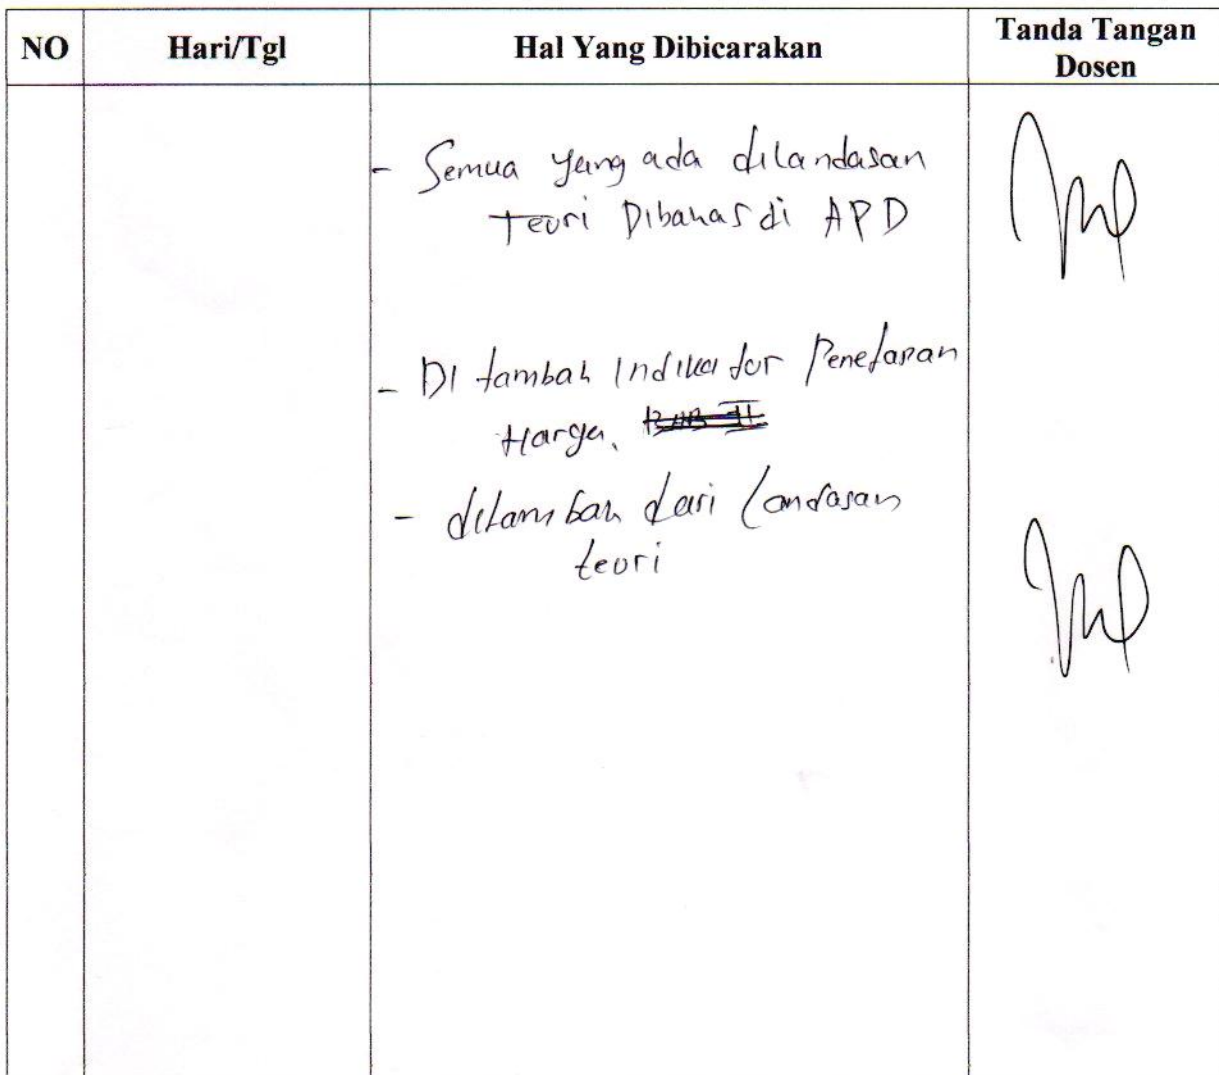 NO Hari/Tgl Hal Yang Dibicarakan Tanda Tangan
Dosen
- Semua yang ada dilandasan
Teori Dibahas di APD
- DI tambah Indikator Penetapan
Harga.
- ditambah dari landasan
teori